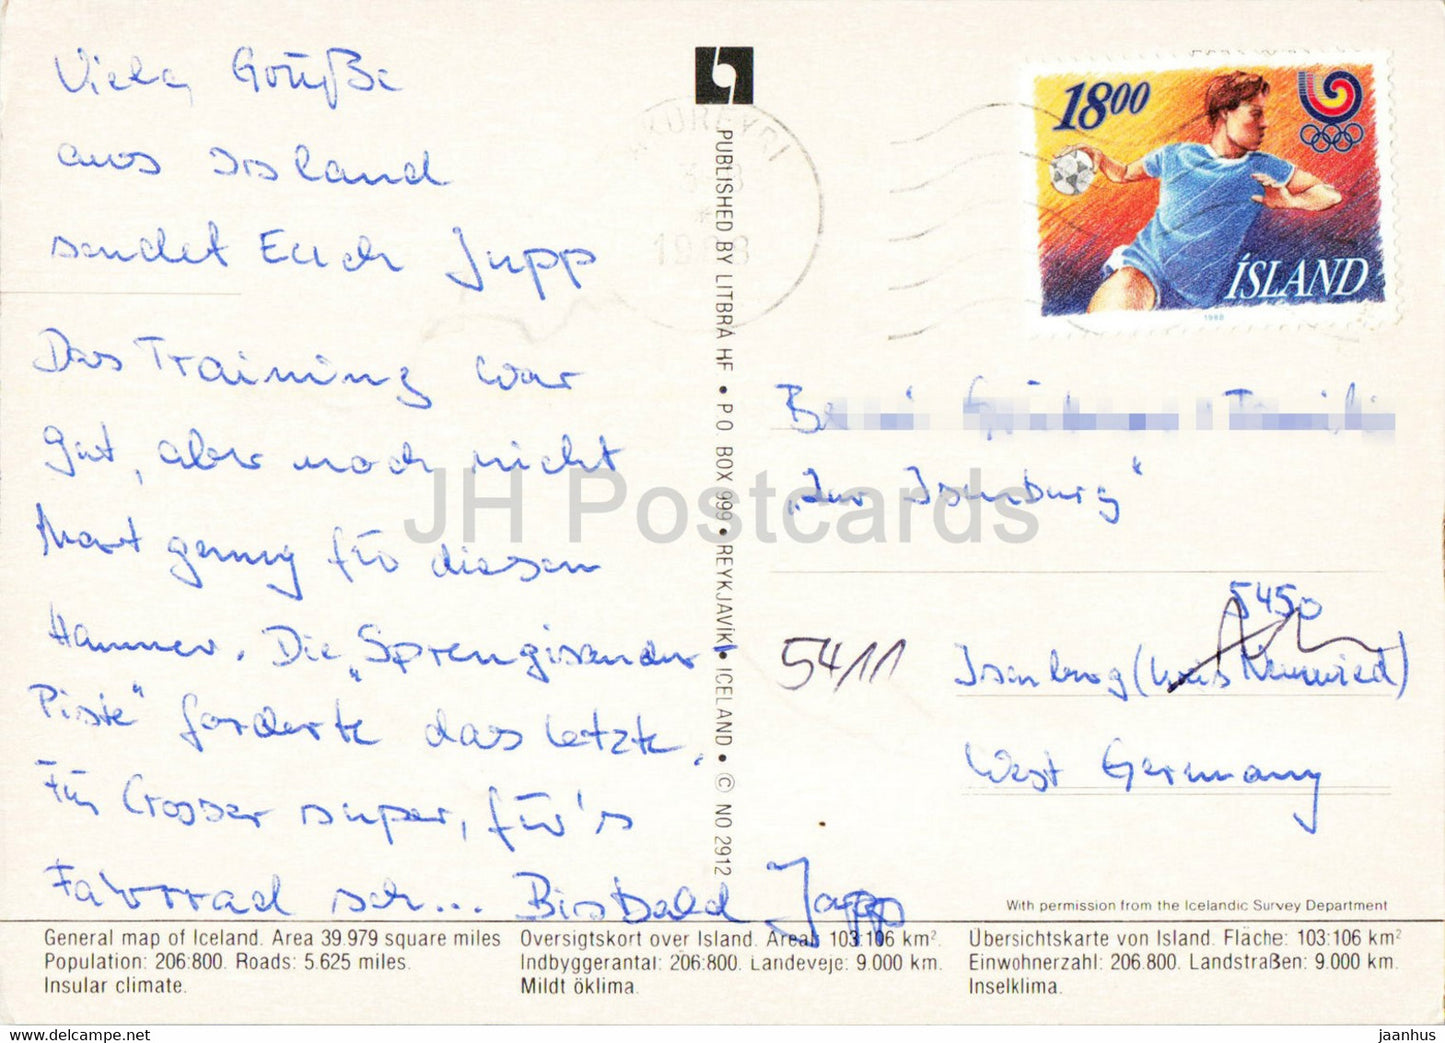 Viele Grüße
aus Island
sendet Euch Jupp
Das Training war
gut, aber noch nicht
Hart genug für diesen
Hammer. Die „Sprengisander-
Piste" forderte das letzte.
Für Crosser super, für's
Fahrrad sch... Bis bald Jupp
PUBLISHED BY LITBRÁ HF • P.O. BOX 999 • REYKJAVÍK • ICELAND • © NO 2912
AKUREYRI
1988
1800
ÍSLAND
1988
„Zur Isenburg"
5450
5411
Isenburg (Kreis Neuwied)
West Germany
With permission from the Icelandic Survey Department
General map of Iceland. Area 39.979 square miles
Population: 206.800. Roads: 5.625 miles.
Insular climate.
Oversigtskort over Island. Areal 103.106 km².
Indbyggerantal: 206.800. Landeveje: 9.000 km.
Mildt öklima.
Übersichtskarte von Island. Fläche: 103.106 km²
Einwohnerzahl: 206.800. Landstraßen: 9.000 km.
Inselklima.
JH Postcards
www.delcampe.net
jaanhus